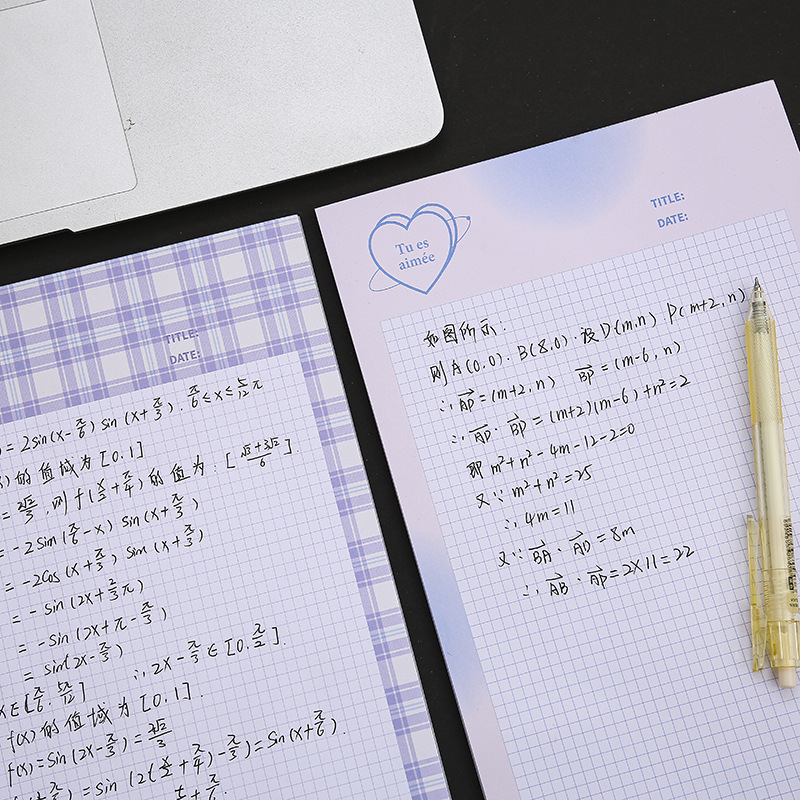 TITLE:
DATE:
=2sin(x-π/6)sin(x+π/3).π/6≤x≤5/12π
的值域为[0.1]
=2√2/3,则f(x/2+π/4)的值为:[(√3+3√2)/6].
=-2sin(π/6-x)sin(x+π/3)
=-2cos(x+π/3)sin(x+π/3)
=-sin(2x+2/3π)
=-sin(2x+π-π/3)
=sin(2x-π/3)
x∈[π/6.5π/12] ∴2x-π/3∈[0.π/2].
f(x)的值域为[0.1].
f(x)=sin(2x-π/3)=2√2/3
=sin(2(x/2+π/4)-π/3)=sin(x+π/6).
Tu es
aimée
TITLE:
DATE:
如图所示.
则A(0.0).B(8.0).设D(m,n) P(m+2,n)
∴AP=(m+2,n) BP=(m-6,n)
∴AP·BP=(m+2)(m-6)+n²=2
即m²+n²-4m-12-2=0
又∵m²+n²=25
∴4m=11
又∵BA·AD=8m
∴AB·AP=2×11=22